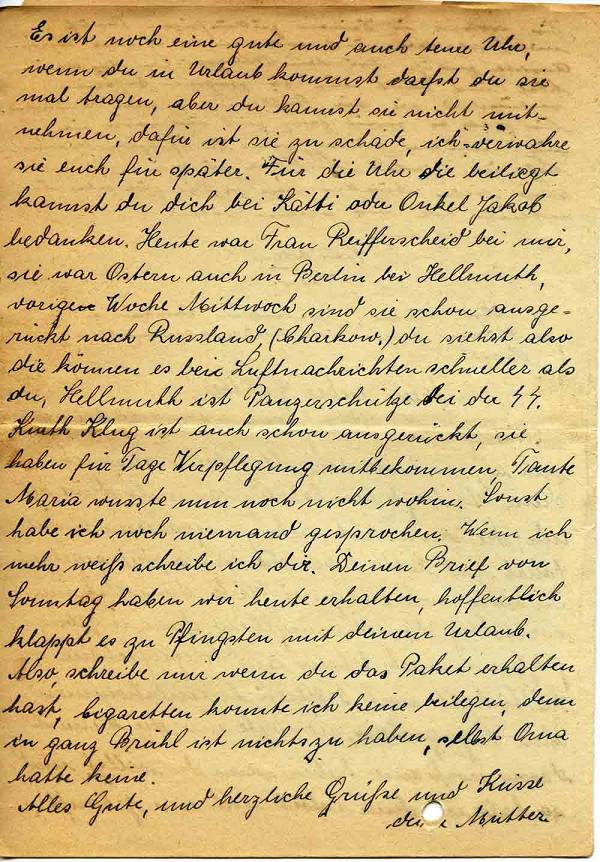 Es ist noch eine gute und auch teure Uhr,
wenn du in Urlaub kommst darfst du sie
mal tragen, aber du kannst sie nicht mit-
nehmen, dafür ist sie zu schade, ich verwahre
sie euch für später. Für die Uhr die beiliegt
kannst du dich bei Kätti oder Onkel Jakob
bedanken. Heute war Frau Reifferscheid bei mir,
sie war Ostern auch in Berlin bei Hellmuth,
vorige Woche Mittwoch sind sie schon ausge-
rückt nach Russland, (Charkow.) du siehst also
die können es bei Luftnachrichten schneller als
du, Hellmuth ist Panzerschütze bei der SS.
Klug ist auch schon ausgerückt, sie
haben für Tage Verpflegung mitbekommen Tante
Maria wusste nun noch nicht wohin. Sonst
habe ich noch niemand gesprochen. Wenn ich
mehr weiß schreibe ich dir. Deinen Brief von
Sonntag haben wir heute erhalten, hoffentlich
klappt es zu Pfingsten mit deinem Urlaub.
Also, schreibe mir wenn du das Paket erhalten
hast, Cigaretten konnte ich keine beilegen, denn
in ganz Brühl ist nichts zu haben, selbst Oma
hatte keine.
Alles Gute, und herzliche Grüße und Küsse
Mutter